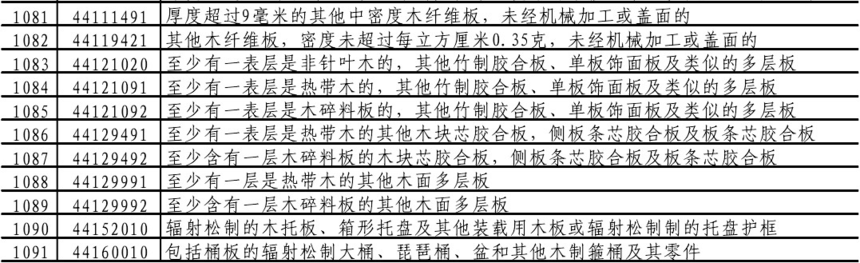 1081 44111491 厚度超过9毫米的其他中密度木纤维板，未经机械加工或盖面的
1082 44119421 其他木纤维板，密度未超过每立方厘米0.35克，未经机械加工或盖面的
1083 44121020 至少有一表层是非针叶木的，其他竹制胶合板、单板饰面板及类似的多层板
1084 44121091 至少有一表层是热带木的，其他竹制胶合板、单板饰面板及类似的多层板
1085 44121092 至少有一表层是木碎料板的，其他竹制胶合板、单板饰面板及类似的多层板
1086 44129491 至少有一表层是热带木的其他木块芯胶合板，侧板条芯胶合板及板条芯胶合板
1087 44129492 至少含有一层木碎料板的木块芯胶合板，侧板条芯胶合板及板条芯胶合板
1088 44129991 至少有一层是热带木的其他木面多层板
1089 44129992 至少含有一层木碎料板的其他木面多层板
1090 44152010 辐射松制的木托板、箱形托盘及其他装载用木板或辐射松制制的托盘护框
1091 44160010 包括桶板的辐射松制大桶、琵琶桶、盆和其他木制箍桶及其零件